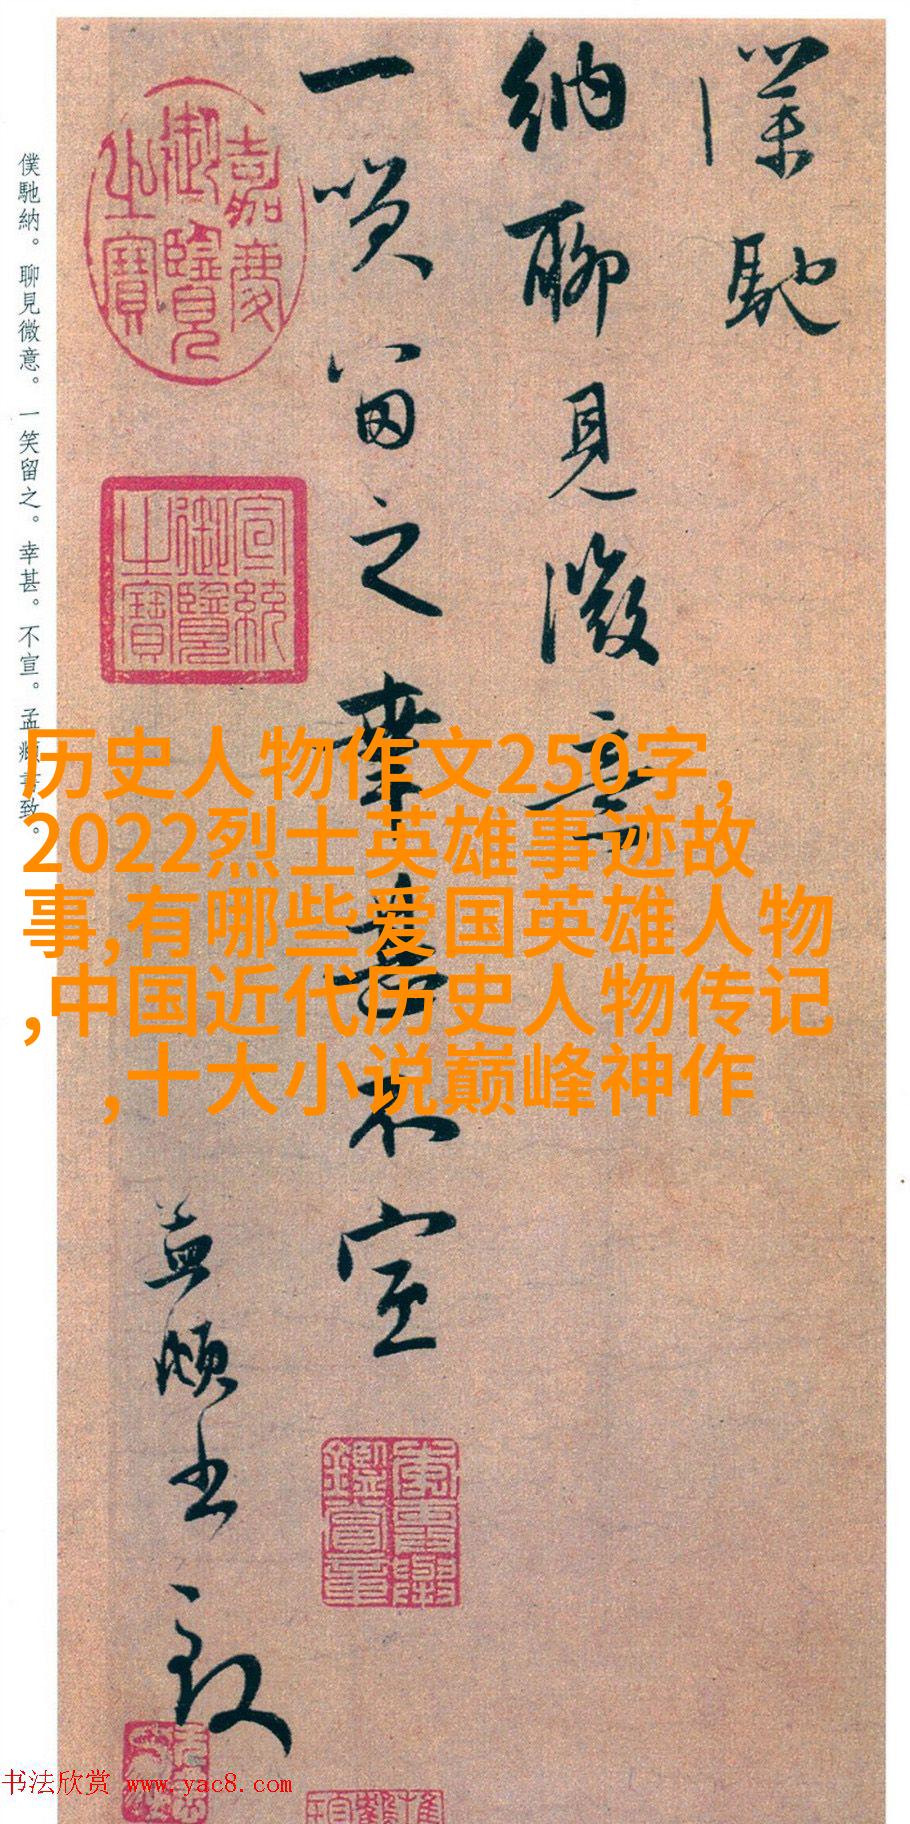 僕馳
納聊見微意
一笑留之幸甚不宣
孟頫書致
嘉慶
御覽
之寶
宣統
御覽
之寶
僕馳納。聊見微意。一笑留之。幸甚。不宣。孟頫書致。
历史人物作文250字,
2022烈士英雄事迹故
事,有哪些爱国英雄人物
,中国近代历史人物传记
,十大小说巅峰神作
书法欣赏 www.yac8.com